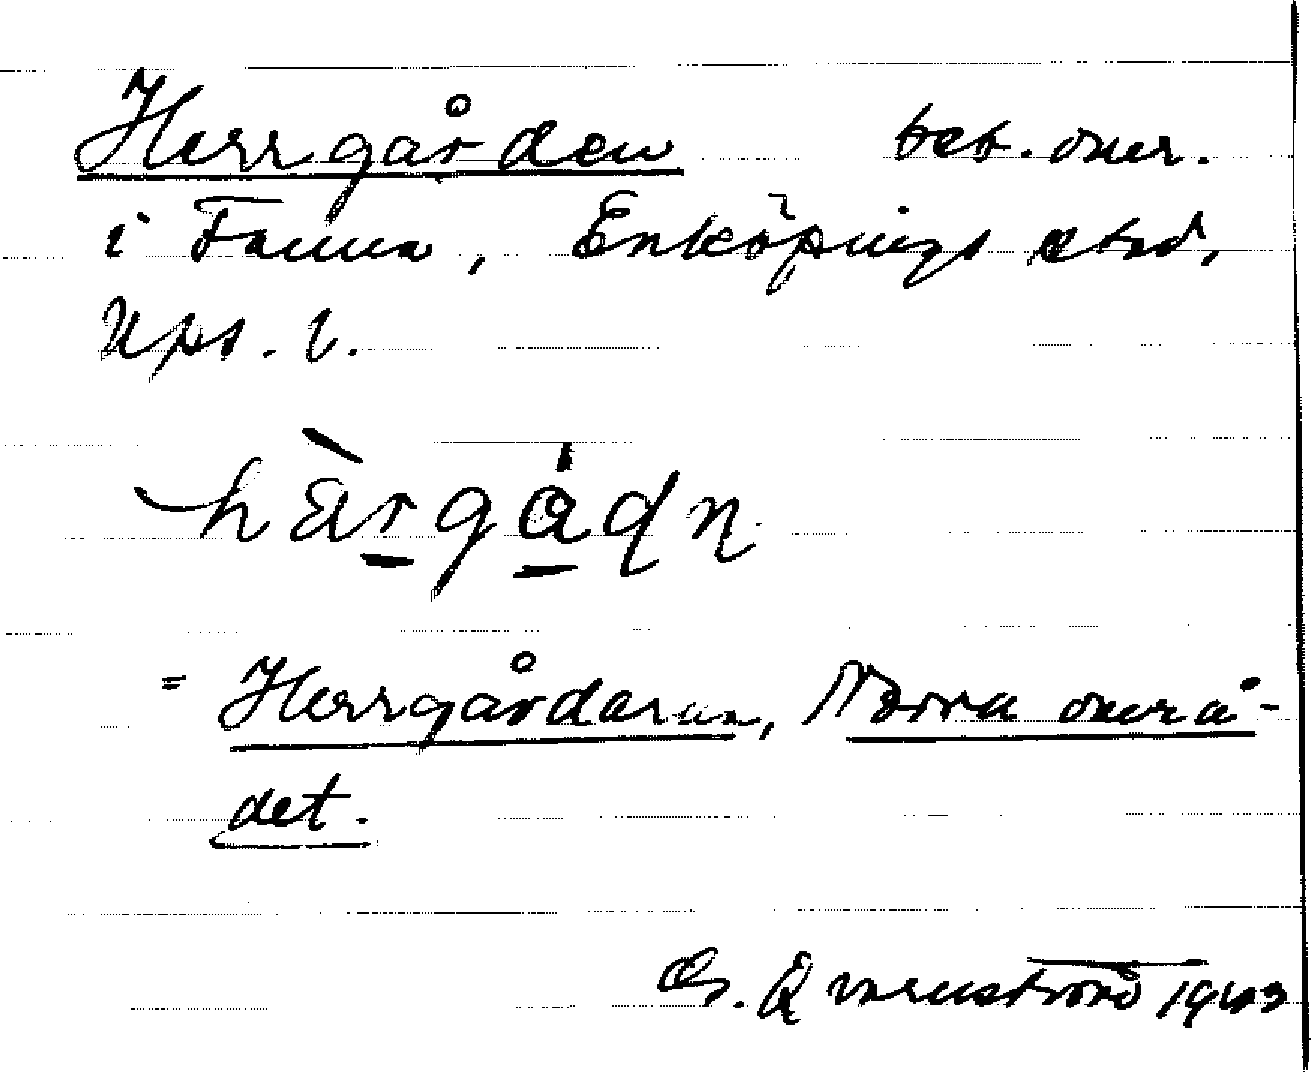 Herrgården beb. omr.
i Fanna, Enköpings stad,
Upps. l.
hàrgådn
= Herrgårdarna, Norra områ-
det.
G. Qvarnström 1943